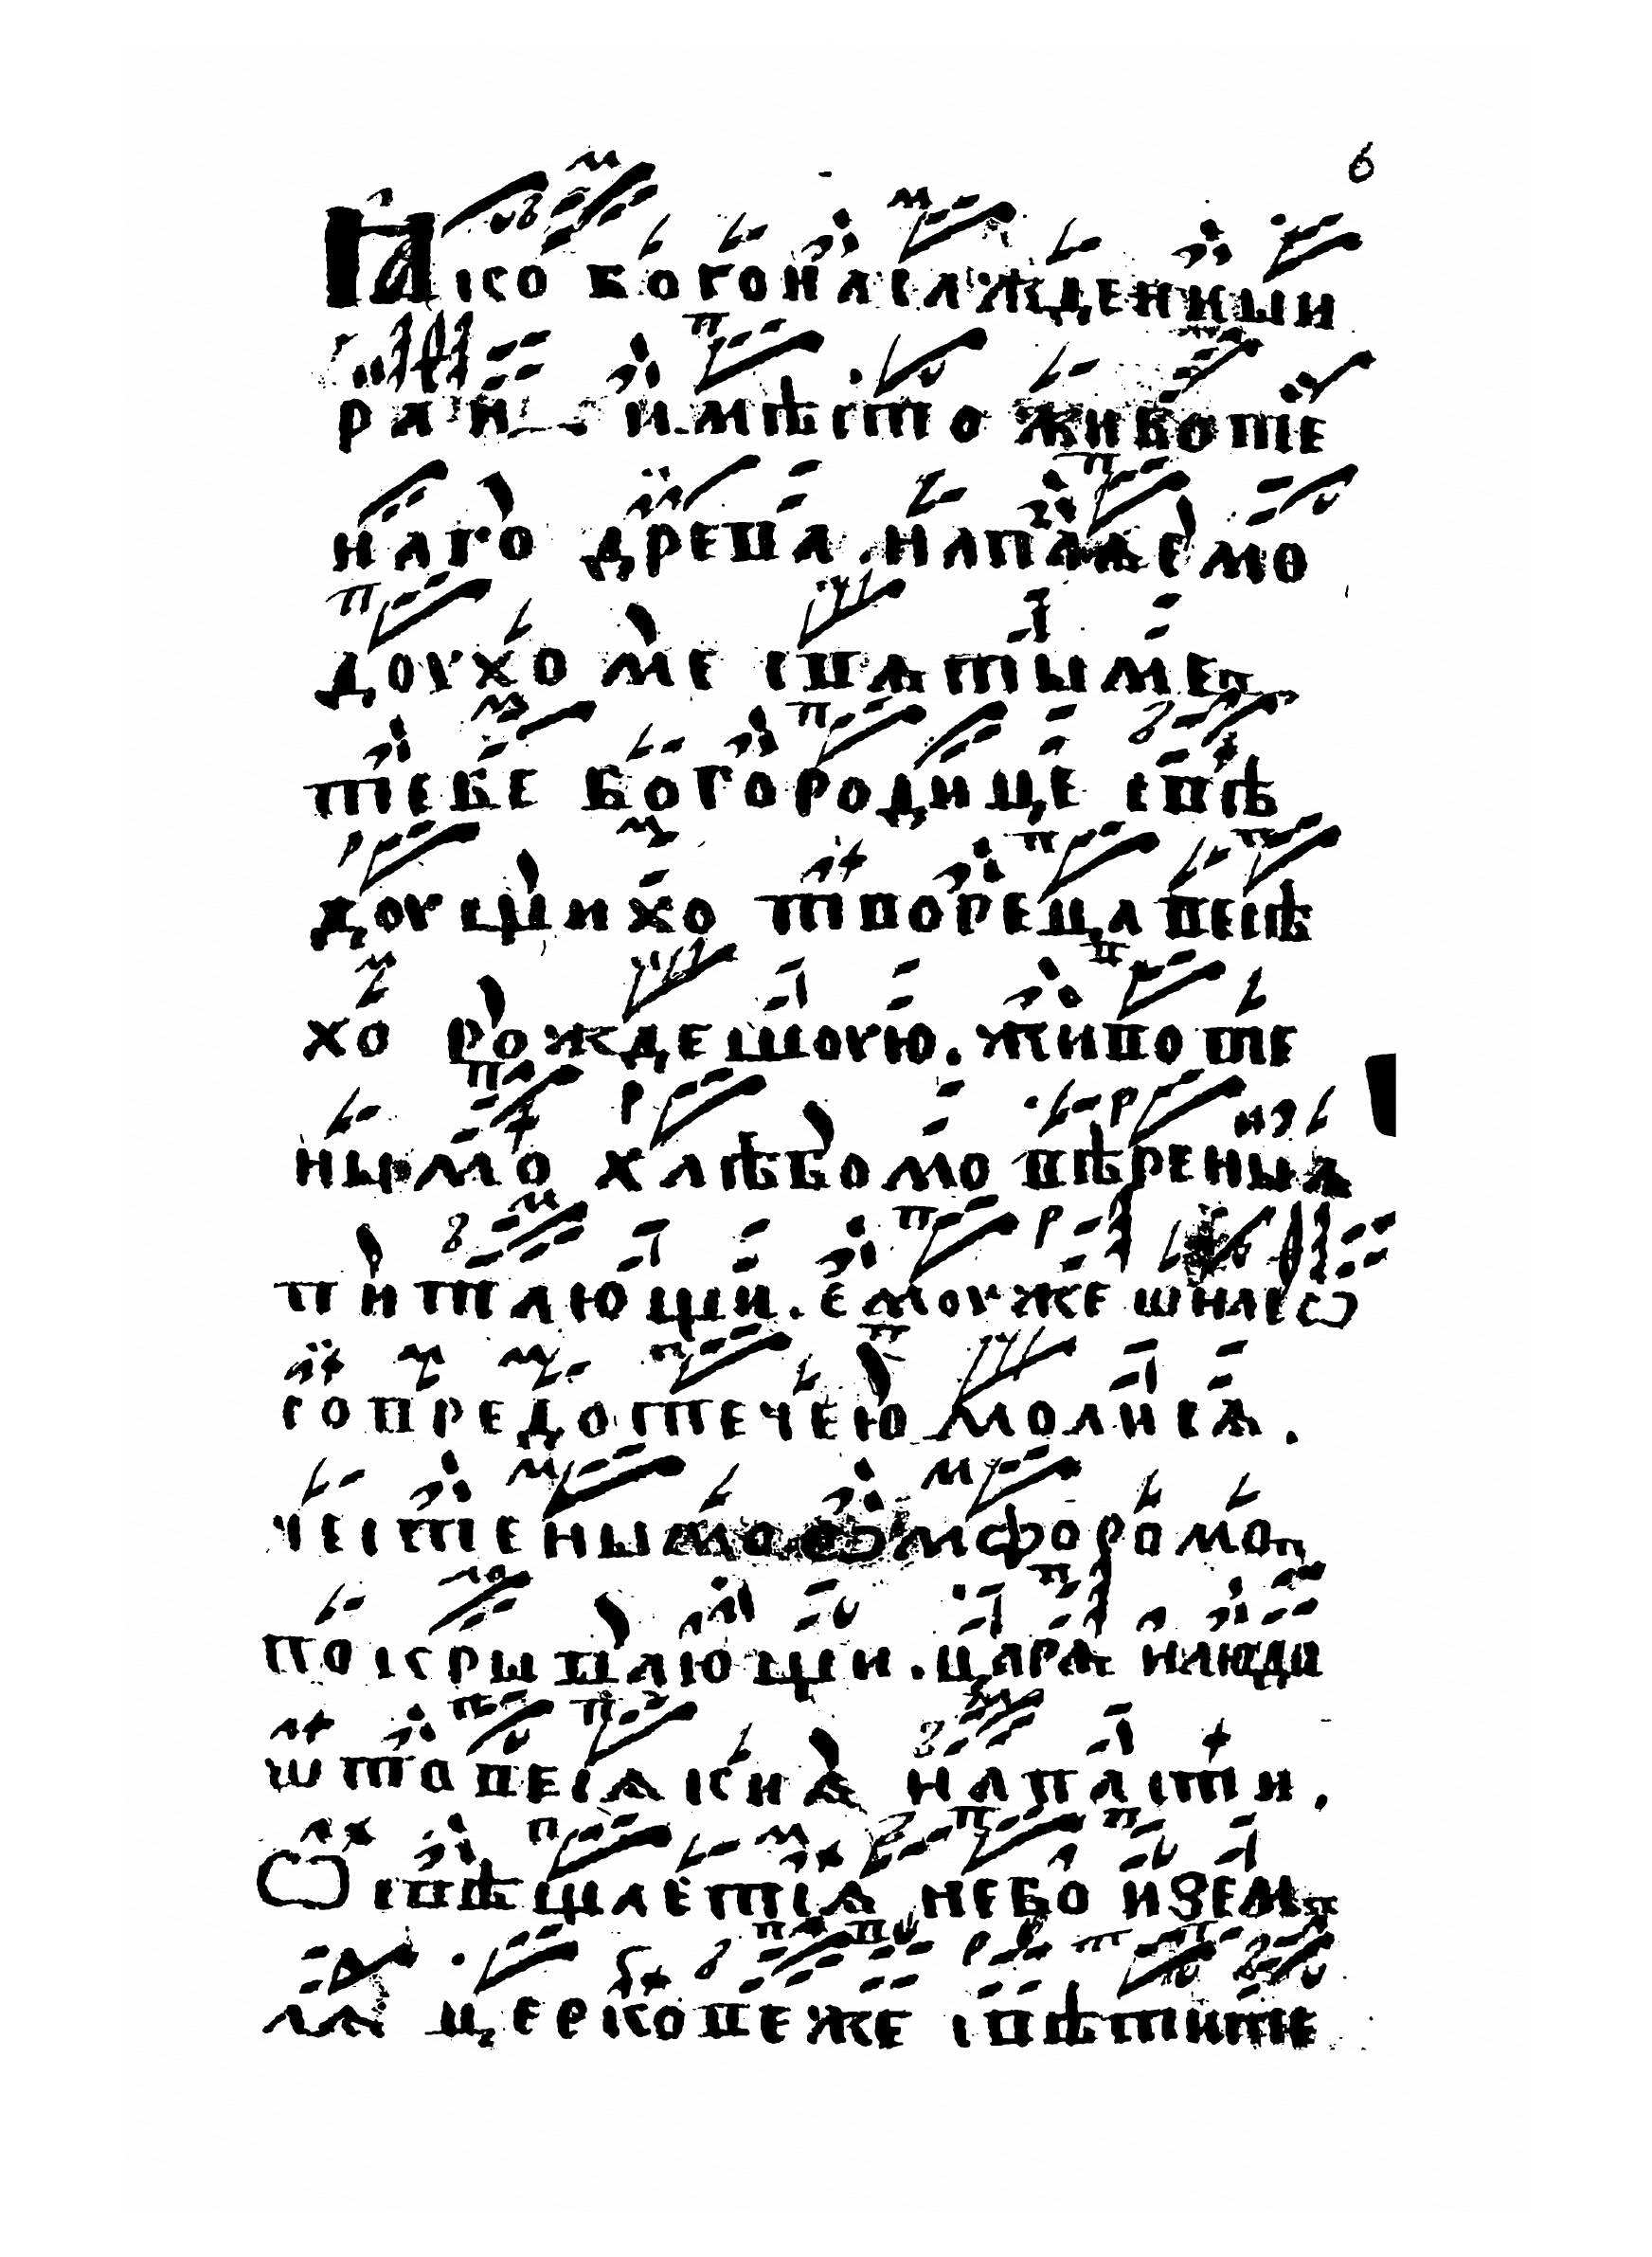 6
Ꙗко богонасажденныи
раи имѣсто животе
наго древа. напаѧемо
доухоме свѧтыме
тебе богородице свѣ
доущихо твореца всѣ
хо рождешоую. животе
нымо хлѣбомо вѣреныѧ
питающи. емоуже ѡнасѿ
со предотечею молисѧ.
честенымо ѡмофоромо
покрывающи. царѧ илюди
ѿвсѧкиѧ напасти.
Ѡсвѣщаетсѧ небо иꙁем
лѧ церковеже свѣтите